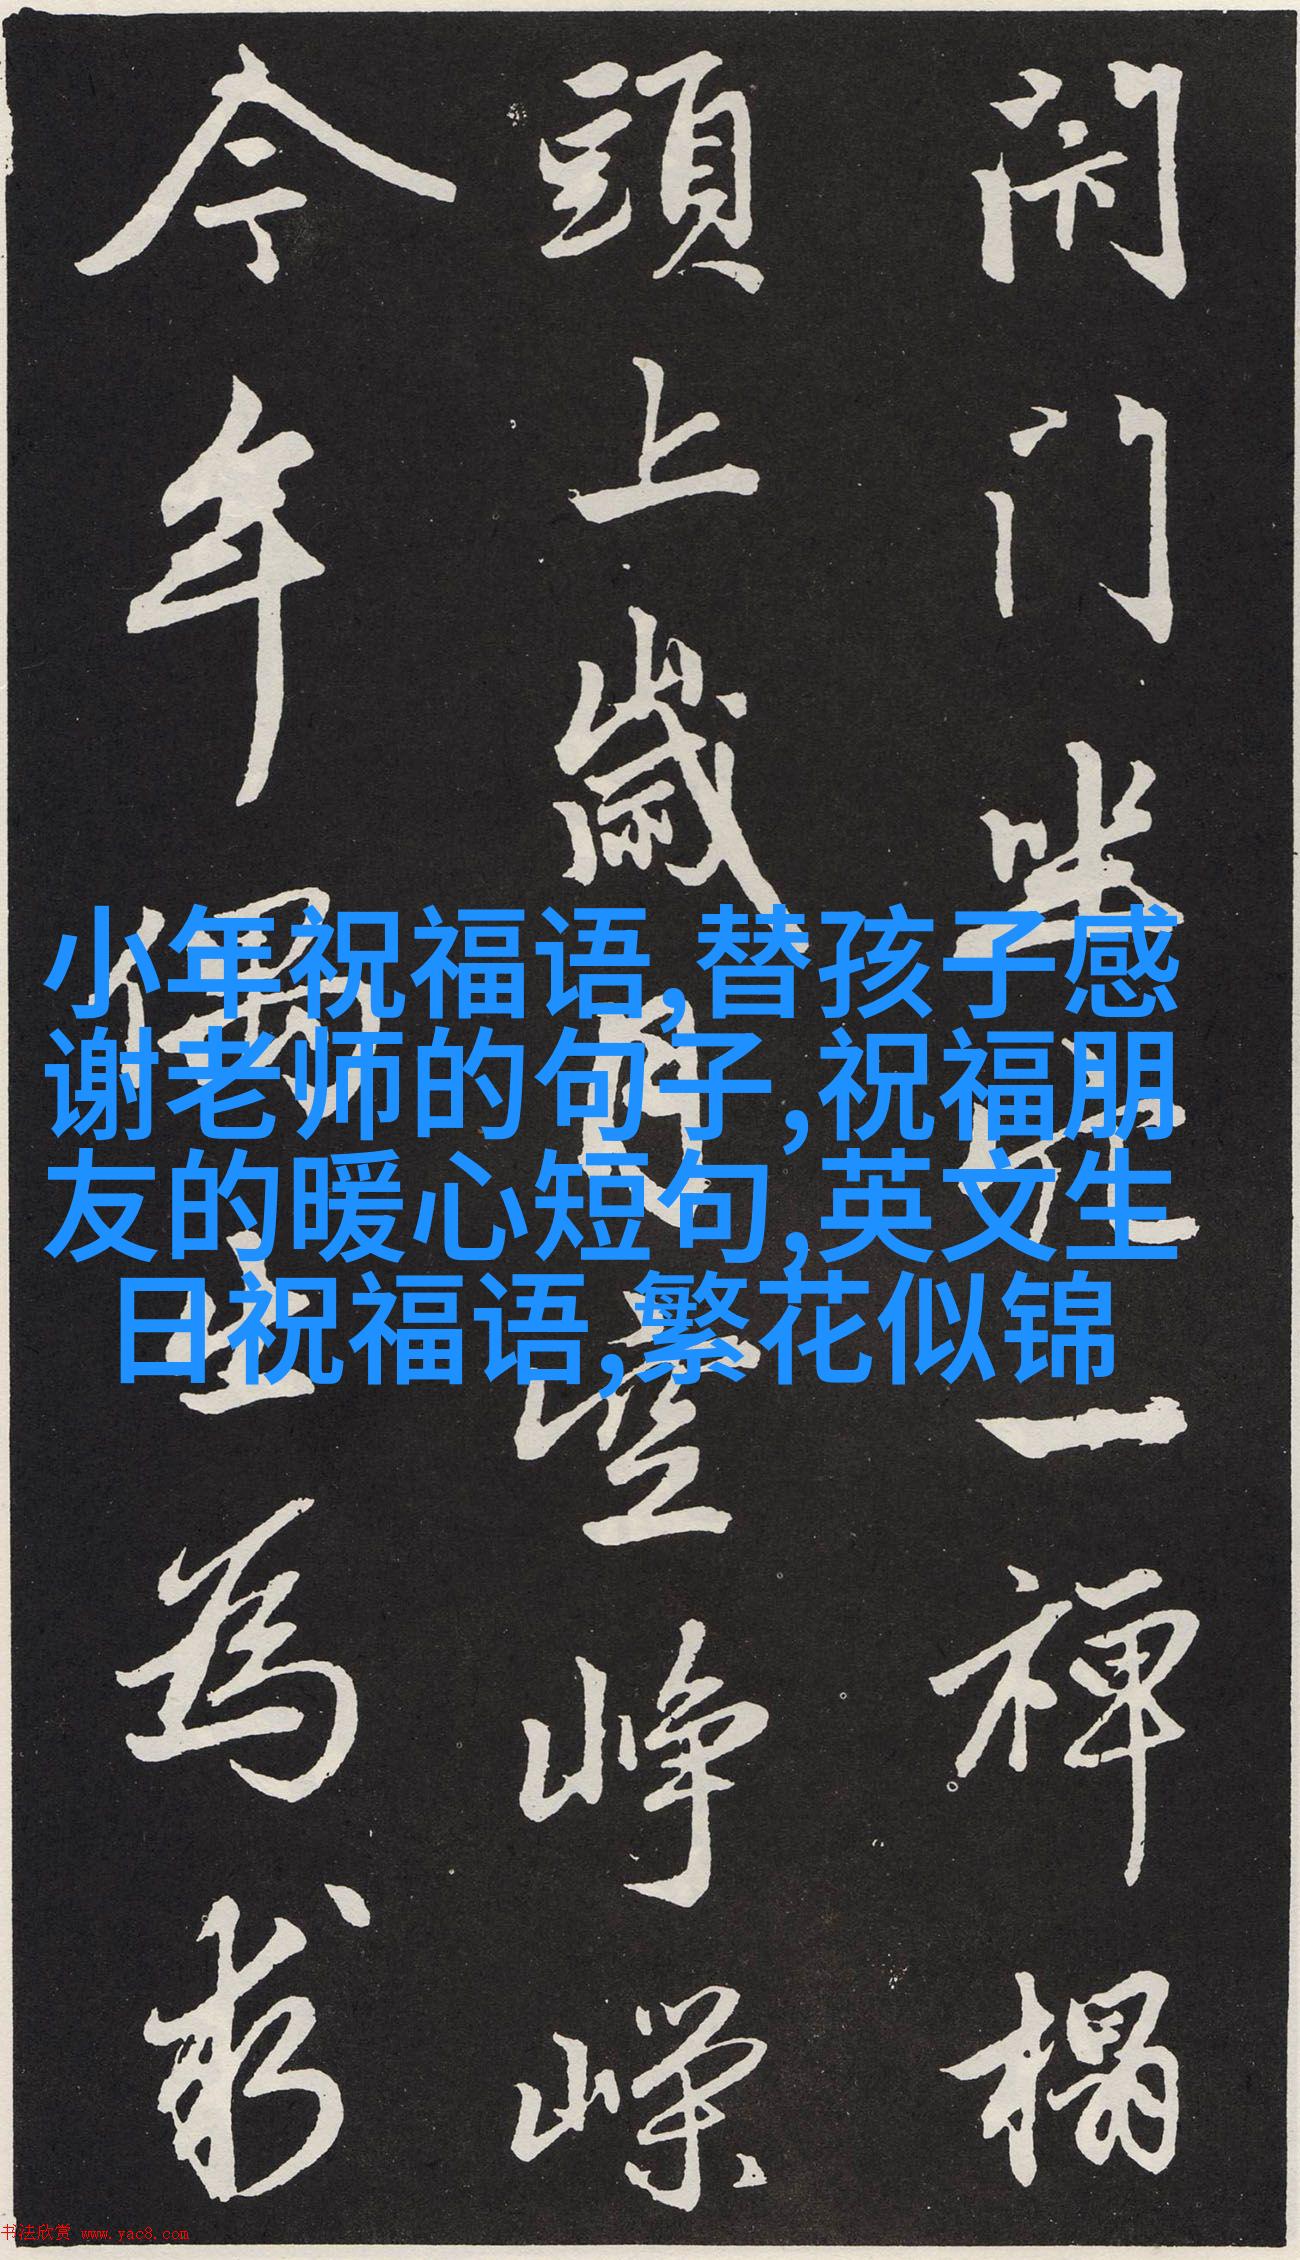 閇门坐穴一禪榻
頭上歲月空崢嶸
今年偶出為求
小年祝福语,替孩子感
谢老师的句子,祝福朋
友的暖心短句,英文生
日祝福语,繁花似锦
书法欣赏 www.yac8.com